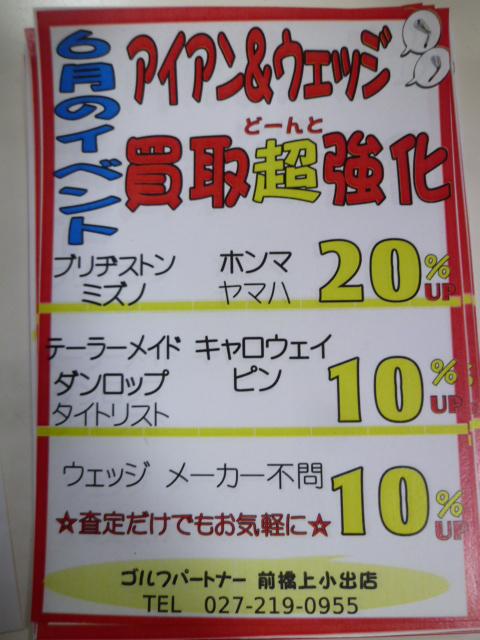 6月のイベント
アイアン&ウェッジ
どーんと
買取超強化
ブリヂストン ホンマ
ミズノ ヤマハ
20%UP
テーラーメイド キャロウェイ
ダンロップ ピン
タイトリスト
10%UP
ウェッジ メーカー不問
10%UP
☆査定だけでもお気軽に☆
ゴルフパートナー 前橋上小出店
TEL 027-219-0955